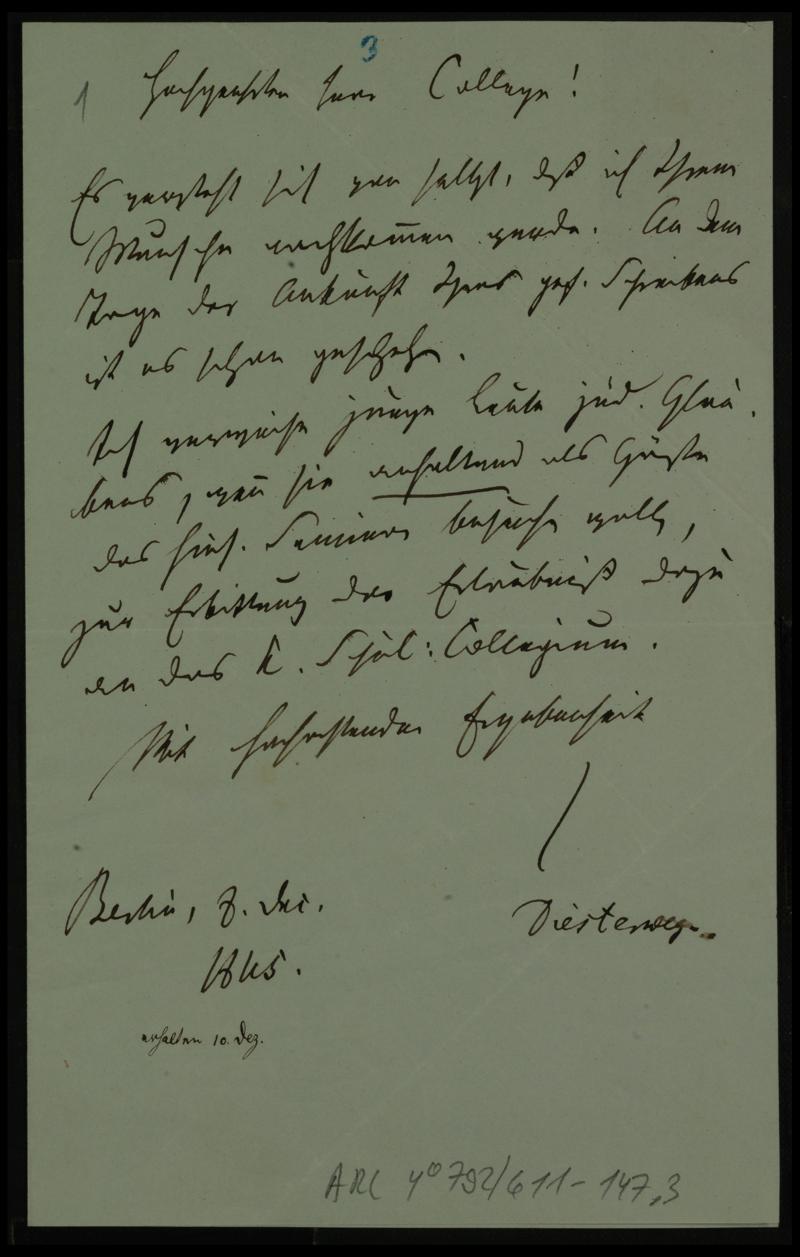 3
1
Hochgeehrter Herr College!
Es versteht sich von selbst, daß ich Ihrem
Wunsche nachkom̅en werde. An dem
Tage der Ankunft Ihres gef. Schreibens
ist es schon geschehn.
Ich verweise junge Leute jüd. Glau-
bens, wen̅ sie anhaltend als Gäste
das hies. Seminar besuchen wollen,
zur Erbittung der Erlaubniß dazu
an das K. Schul: Collegium.
Mit hochachtender Ergebenheit
Berlin, 8. Dec.
Diesterweg.
1845.
erhalten 10. Dez.
ARC 4° 792/611-147,3